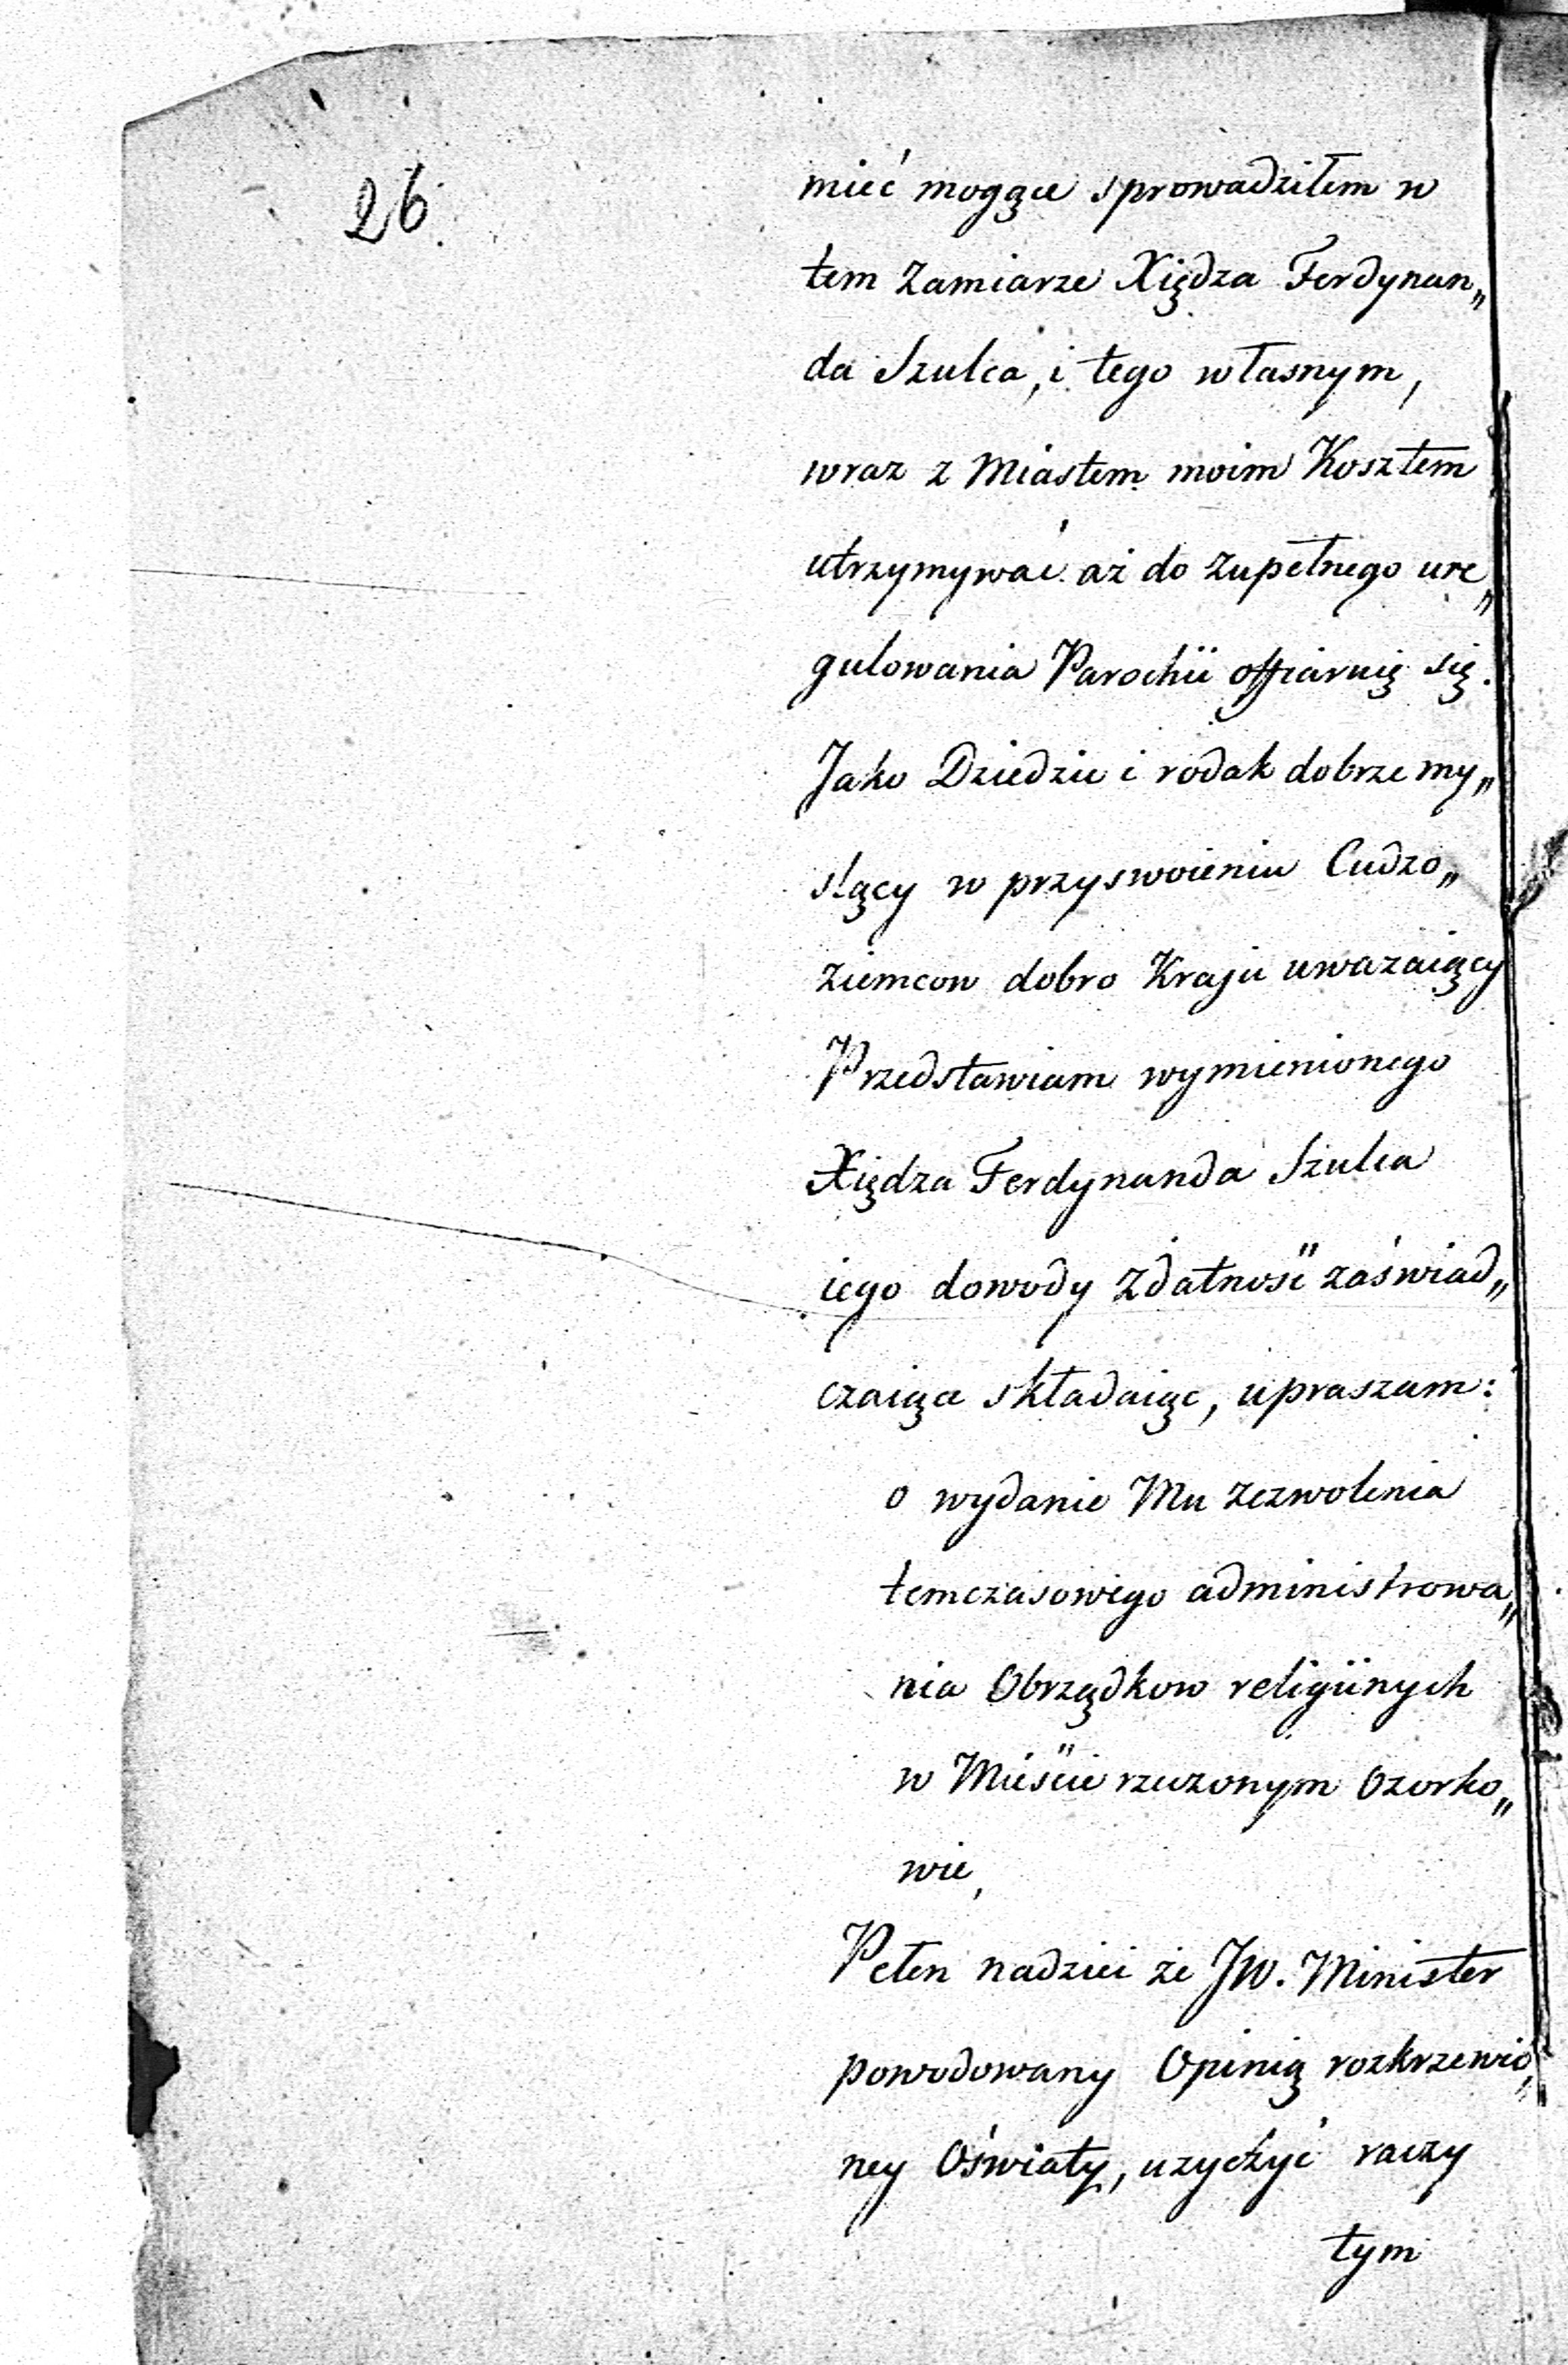 26.
mieć mogące sprowadziłem w
tem zamiarze Xiędza Ferdynan„
da Szulca, i tego własnym,
wraz z Miastem moim Kosztem
utrzymywać aż do zupełnego ure„
gulowania Parochii offiaruię się.
Jako Dziedzic i rodak dobrze my„
slący w przyswoieniu Cudzo„
ziemcow dobro Kraju uwazaiący
Przedstawiam wymienionego
Xiędza Ferdynanda Szulca
iego dowody zdatność zaświad„
czaiące składaiąc, upraszam:
o wydanie Mu zezwolenia
temczasowego administrowa„
nia Obrządkow religiinych
w Mieście rzeczonym Ozorko„
wie,
Pełen nadziei że JW. Minister
powodowany Opinią rozkrzewio„
ney Oświaty, uzyczyć raczy
tym